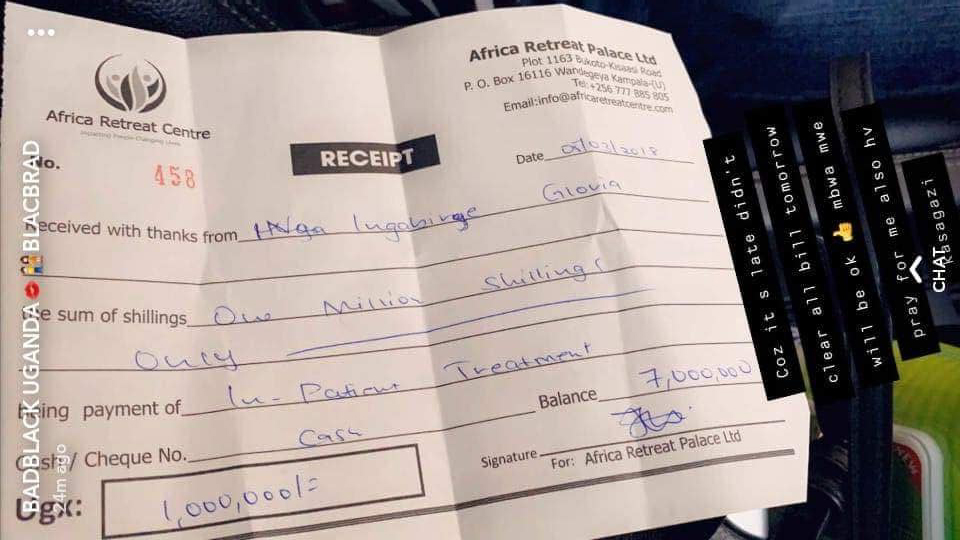 Africa Retreat Centre
Africa Retreat Palace Ltd
Plot 1163 Bukoto-Kisaasi Road
P. O. Box 16116 Wandegeya Kampala-(U)
Tel: +256 777 885 805
Email:info@africaretreatcentre.com
No. 458
RECEIPT
Date 05/02/2018
Received with thanks from Ingabirye Gloria
the sum of shillings One Million Shillings
Only
being payment of In-Patient Treatment
Cash/ Cheque No. Cash
Balance 7,000,000
Signature
For: Africa Retreat Palace Ltd
Ugx: 1,000,000/=
BADBLACK UGANDA💋👭 BLACBRAD
24m ago
Coz it s late didn't
clear all bill tomorrow
will be ok 👍 mbwa mwe
pray for me also hv
kasagazi
CHAT